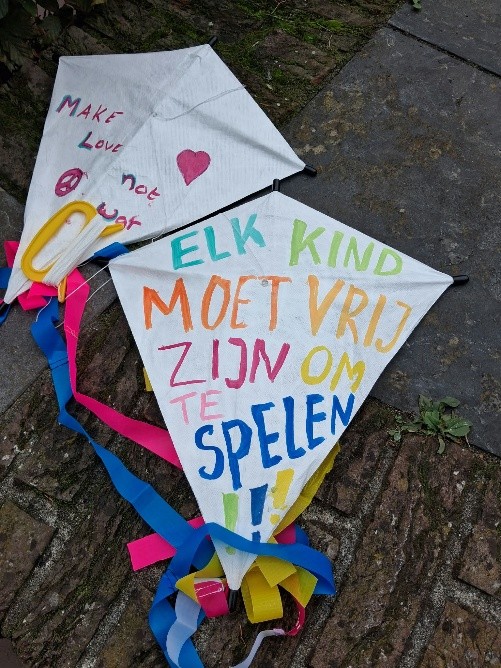 MAKE
LOVE
not
war
ELK KIND
MOET VRIJ
ZIJN OM
TE
SPELEN
!!!